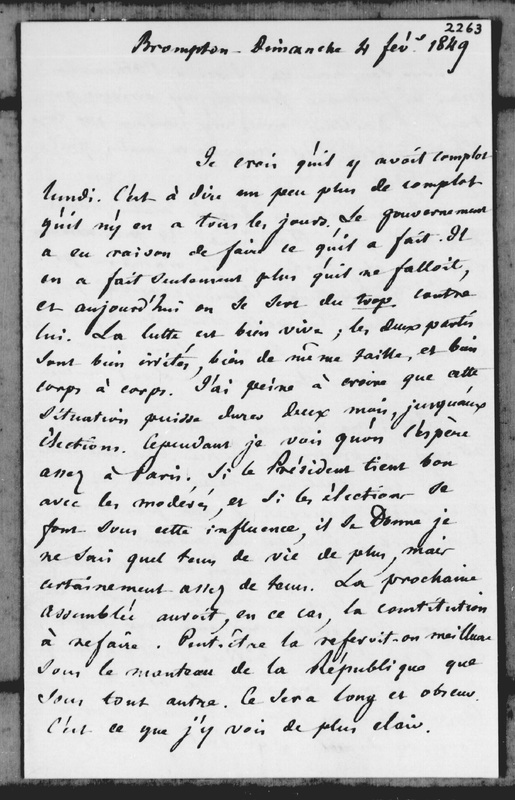 2263
Brompton - Dimanche 4 fév. 1849
Je crois qu'il y avoit complot
lundi. C'est à dire un peu plus de complot
qu'il n'y en a tous les jours. Le gouvernement
a eu raison de faire ce qu'il a fait. Il
en a fait seulement plus qu'il ne falloit,
et aujourd'hui on se sert du trop contre
lui. La lutte est bien vive ; les deux partis
sont bien irrités, bien de même taille, et bien
corps à corps. J'ai peine à croire que cette
situation puisse durer deux mois, jusqu'aux
élections. Cependant je vois qu'on l'espère
assez à Paris. Si le Président tient bon
avec les modérés, et si les élections se
font sous cette influence, il se donne je
ne sais quel tems de vie de plus, mais
certainement assez de tems. La prochaine
assemblée auroit, en ce cas, la constitution
à refaire. Peut-être la referoit-on meilleure
sous le manteau de la République que
sous tout autre. Ce sera long et obscur.
C'est ce que j'y vois de plus clair.